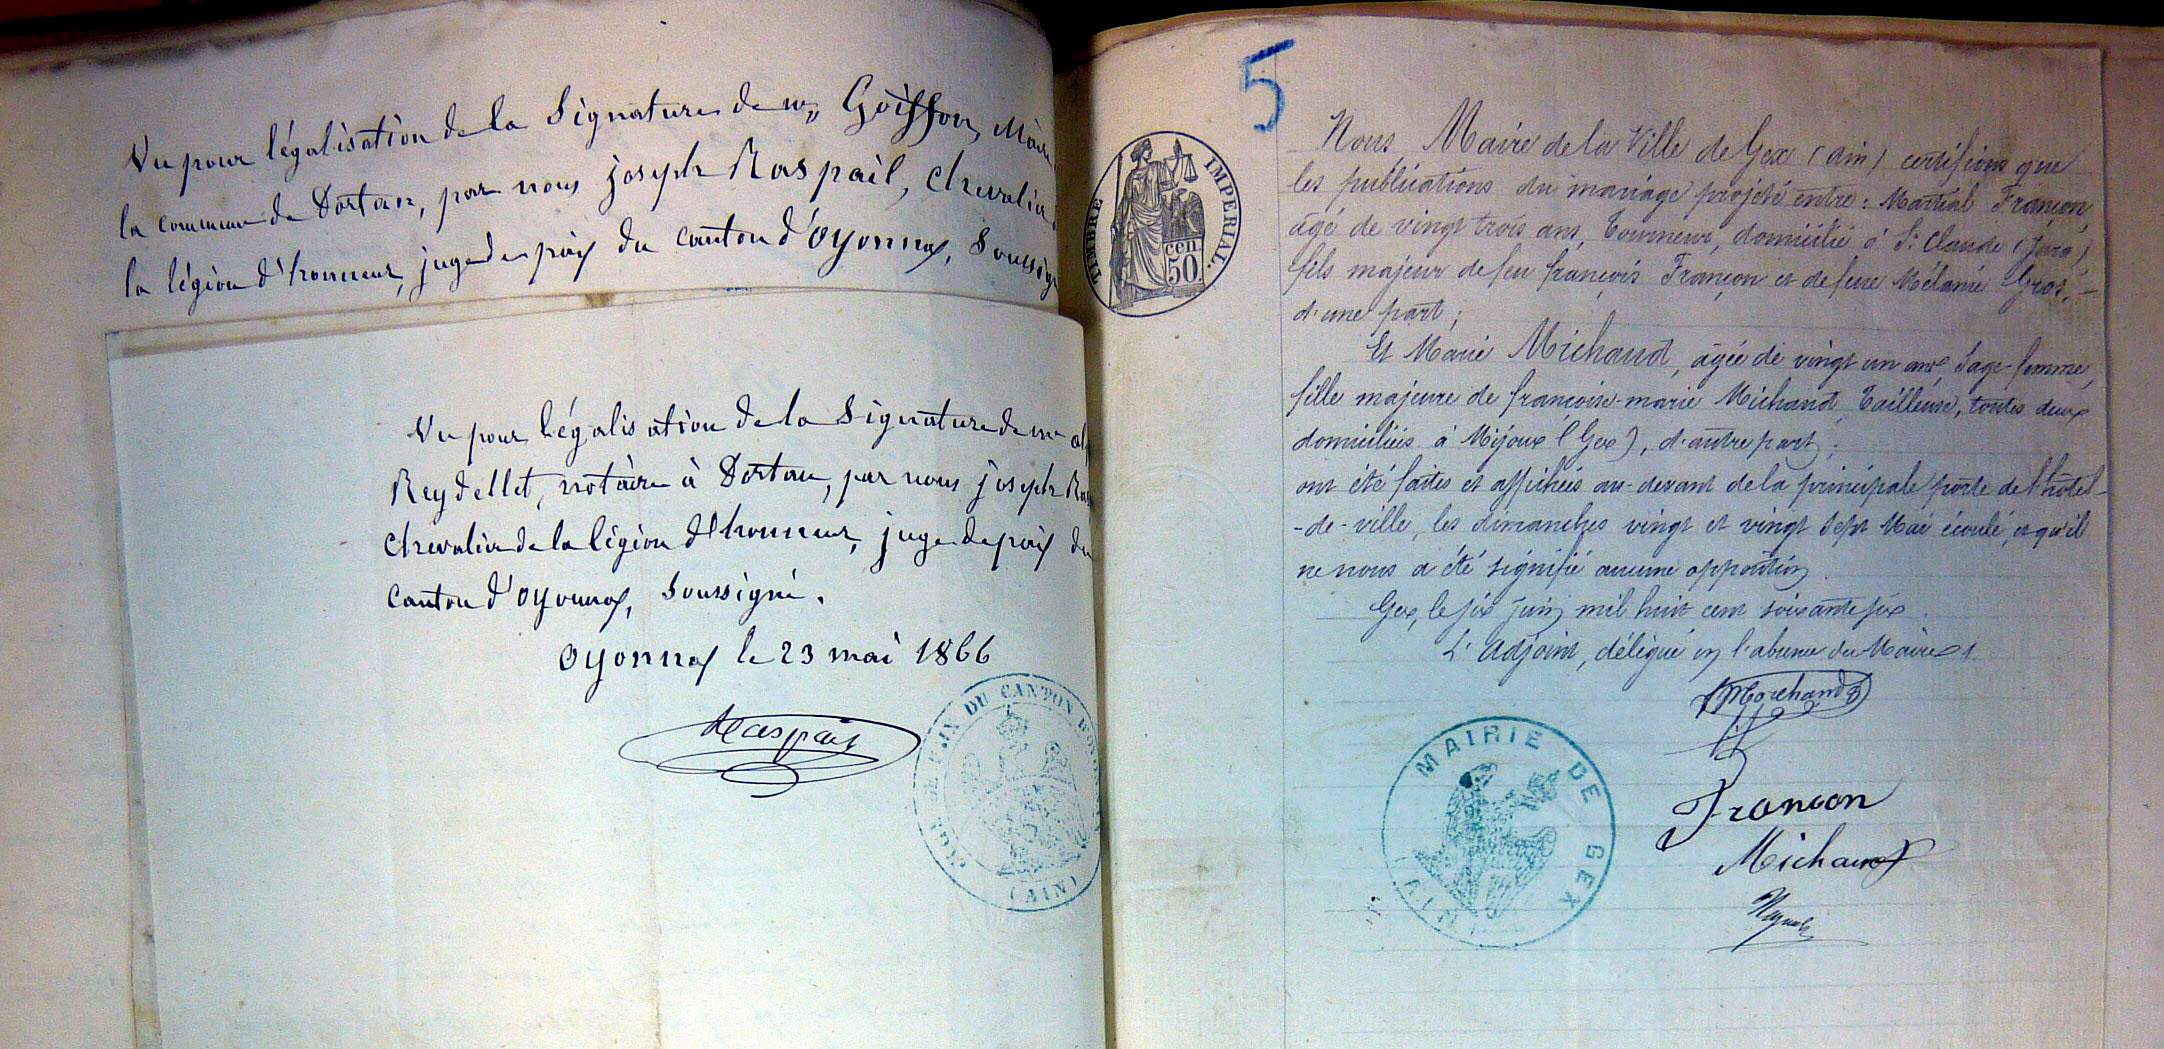 Vu pour légalisation de la Signature de mr Goiffon, Maire
la commune de Dortan, par nous joseph Raspail, chevalier
la légion d'honneur, juge de paix du canton d'oyonnax, Soussigné
Vu pour légalisation de la Signature de mr
Reydellet, notaire à Dortan, par nous joseph Ras
chevalier de la légion d'honneur, juge de paix du
canton d'oyonnax, Soussigné.
Oyonnax le 23 mai 1866
Raspail
JUGE DE PAIX DU CANTON D'OYONNAX
(AIN)
5
TIMBRE IMPERIAL.
50 cen
Nous Maire de la Ville de Gex (ain) certifions que
les publications du mariage projeté entre : Martial Françon,
âgé de vingt trois ans, Tourneur, domicilié à St Claude (Jura)
fils majeur de feu françois Françon et de feue Mélanie Gros, -
d'une part ;
Et Marie Michaud, agée de vingt un ans, Sage-femme,
fille majeure de francoise-marie Michaud, Tailleuse, toutes deux
domiciliées à Mijoux (Gex), d'autre part ;
ont été faites et affichées au-devant de la principale porte de l'hôtel-
-de-ville, les dimanches vingt et vingt sept Mai écoulé, et qu'il
ne nous a été signifié aucune opposition.
Gex, le six juin mil huit cent soixante six.
L'Adjoint, délégué en l'absence du Maire
Marchand
MAIRIE DE GEX
(AIN)
Francon
Michaud